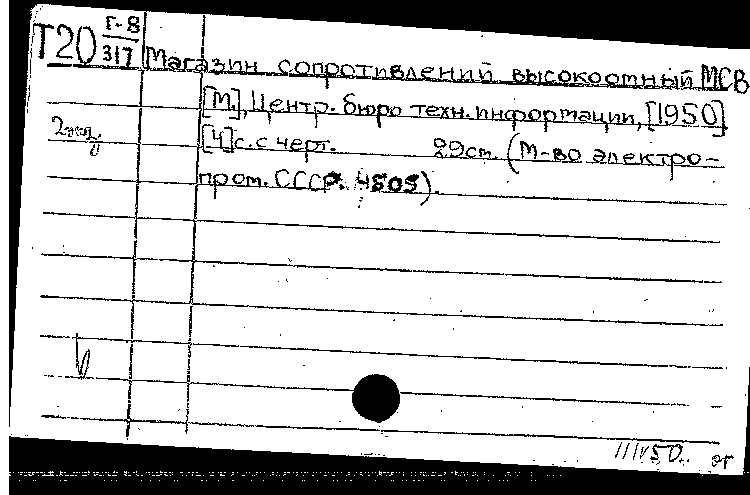 Т20 Г-8
317
Магазин сопротивлений высокоомный МСВ
[М.], Центр. бюро техн. информации, [1950]
2 экз.
[4] с. с черт. 29 см. (М-во электро-
пром. СССР. 4505).
50.